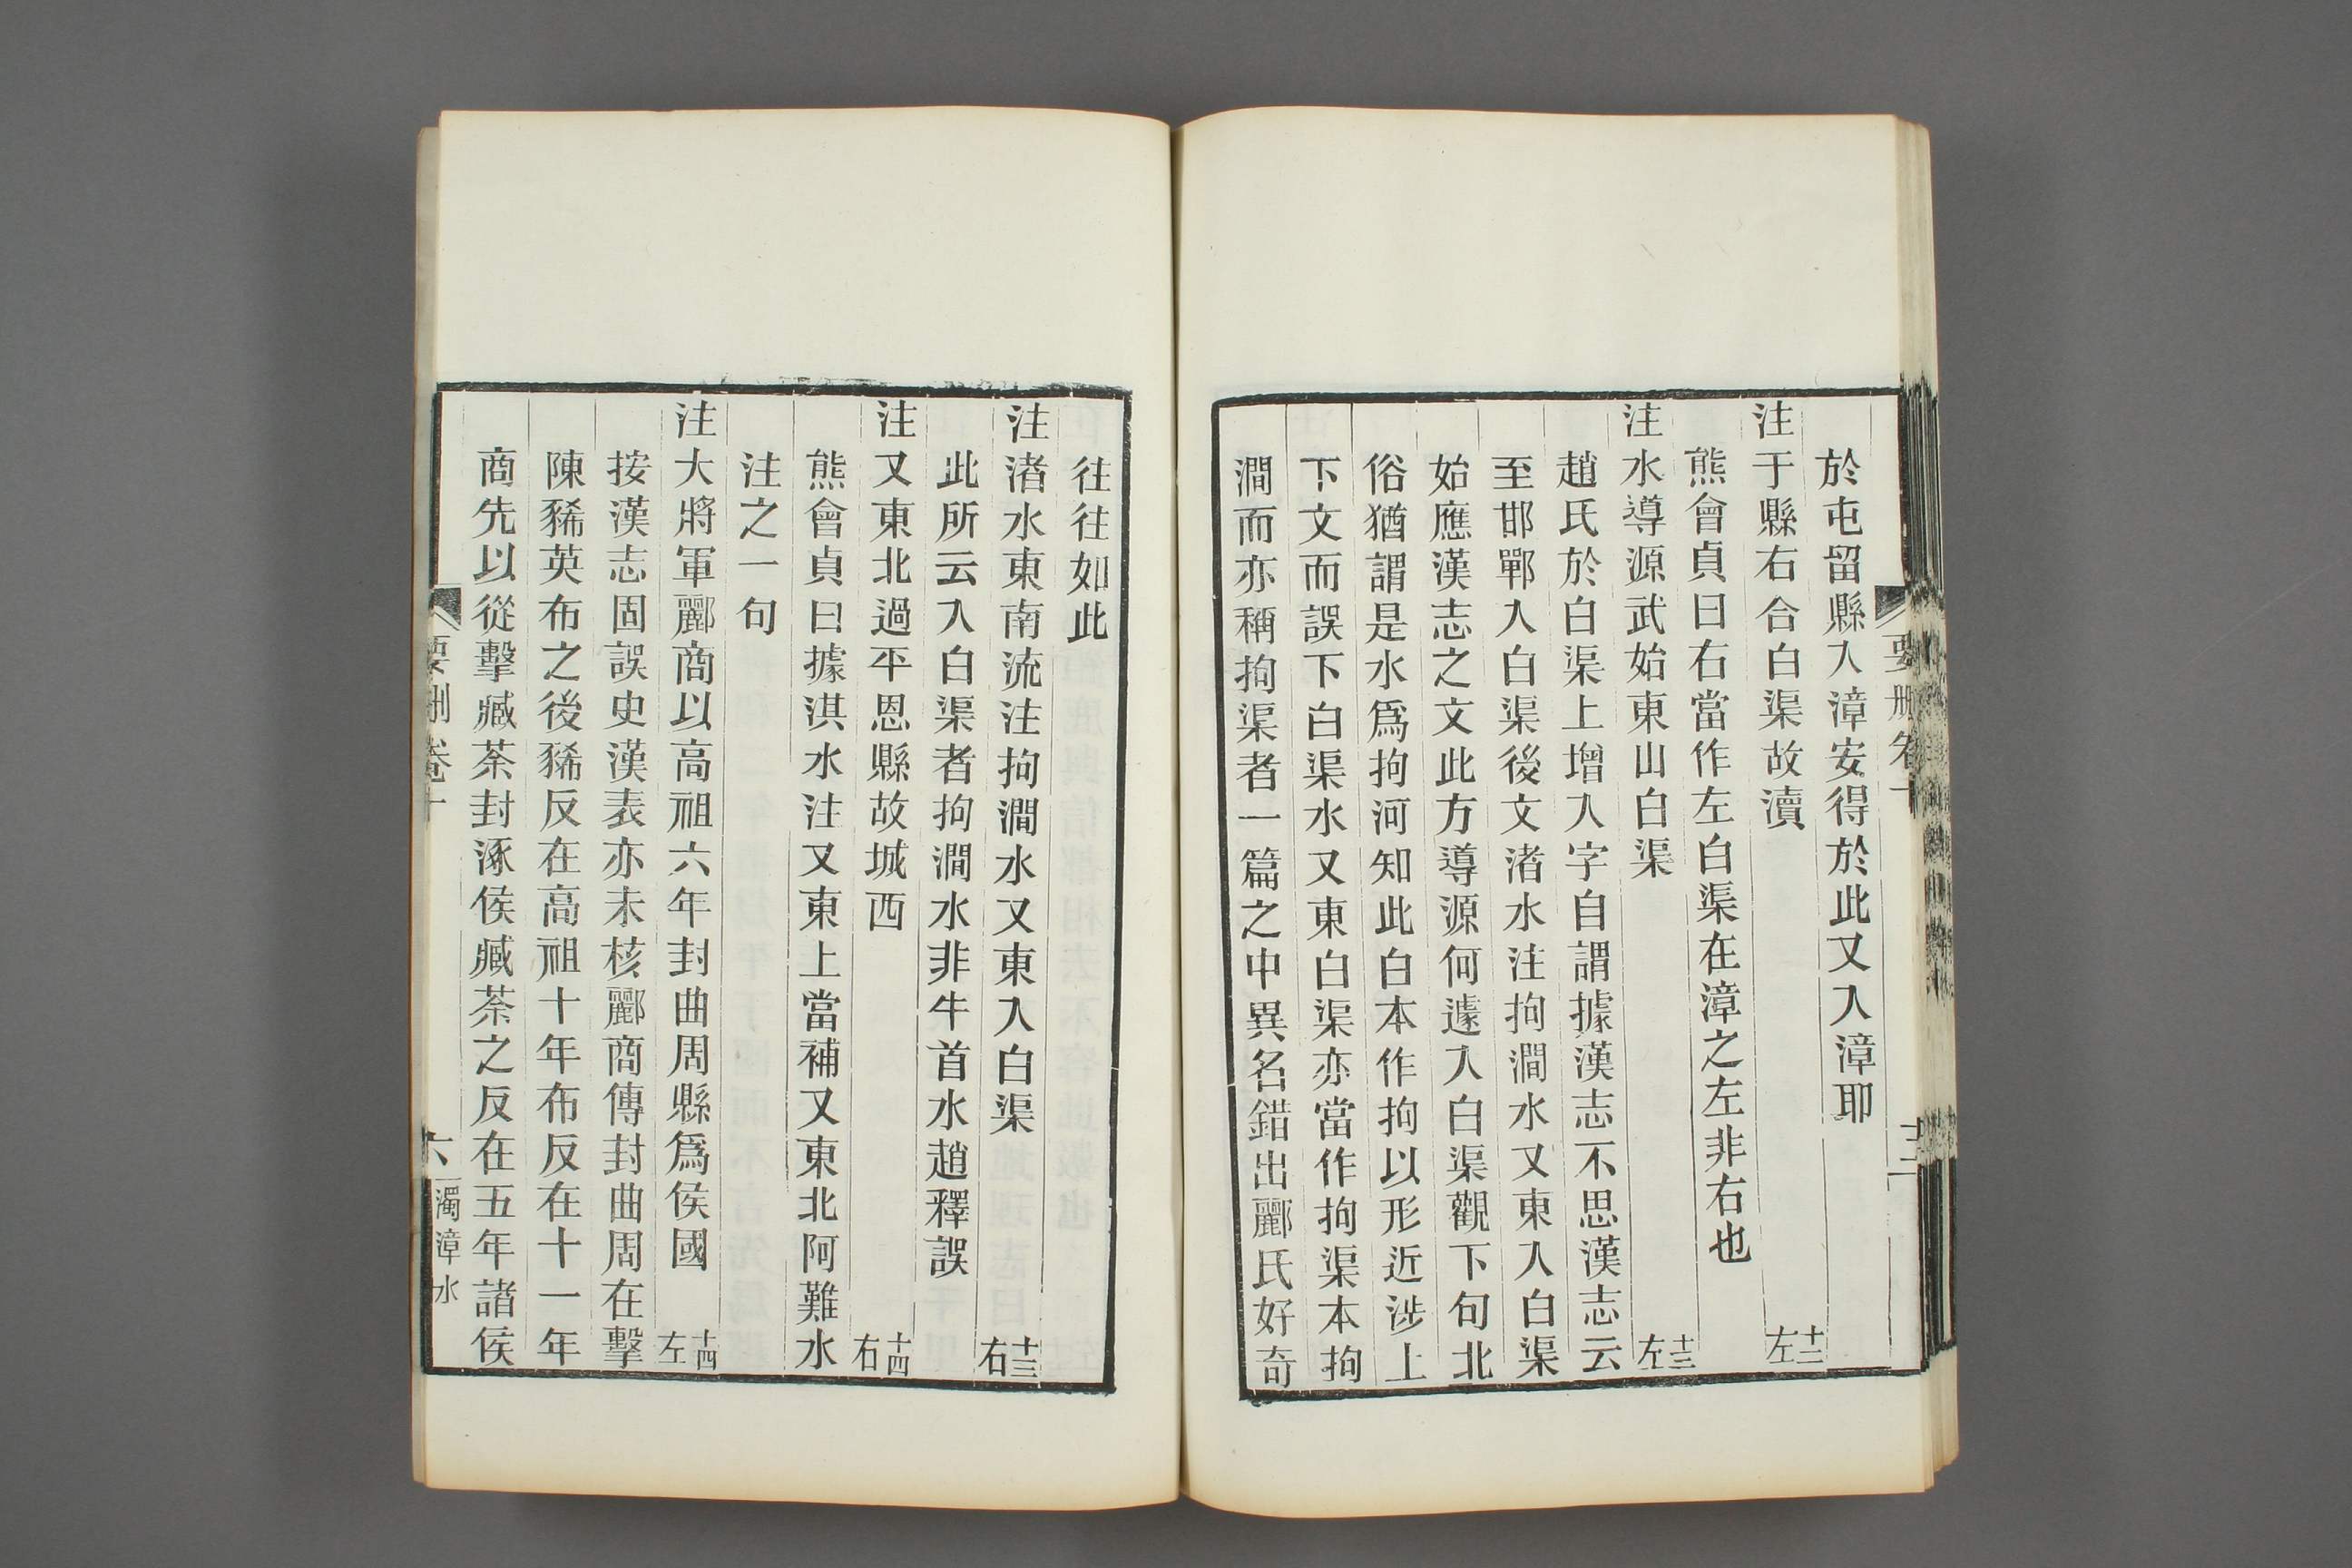 於屯留縣入漳安得於此又入漳耶
注于縣右合白渠故瀆 十二左
熊會貞曰右當作左白渠在漳之左非右也
注水導源武始東山白渠 十三左
趙氏於白渠上增入字自謂據漢志不思漢志云
至邯鄲入白渠後文渚水注拘澗水又東入白渠
始應漢志之文此方導源何遽入白渠觀下句北
俗猶謂是水爲拘河知此白本作拘以形近涉上
下文而誤下白渠水又東白渠亦當作拘渠本拘
澗而亦稱拘渠者一篇之中異名錯出酈氏好奇
往往如此
注渚水東南流注拘澗水又東入白渠 十三右
此所云入白渠者拘澗水非牛首水趙釋誤
注又東北過平恩縣故城西 十四右
熊會貞曰據淇水注又東上當補又東北阿難水
注之一句
注大將軍酈商以高祖六年封曲周縣爲侯國 十四左
按漢志固誤史漢表亦未核酈商傳封曲周在擊
陳豨英布之後豨反在高祖十年布反在十一年
商先以從擊臧荼封涿侯臧荼之反在五年諸侯
要刪卷十
六
濁漳水